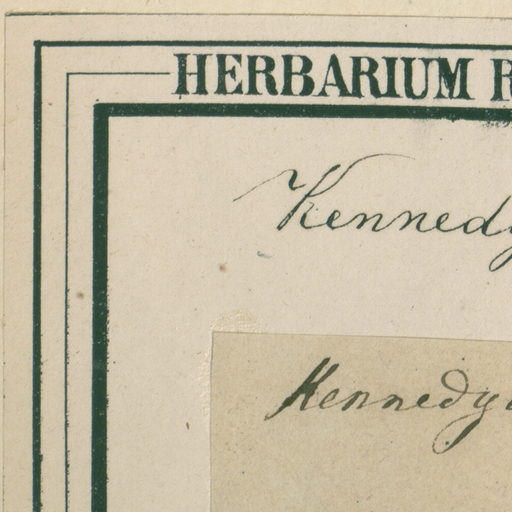 HERBARIUM R
Kennedy
Kennedya